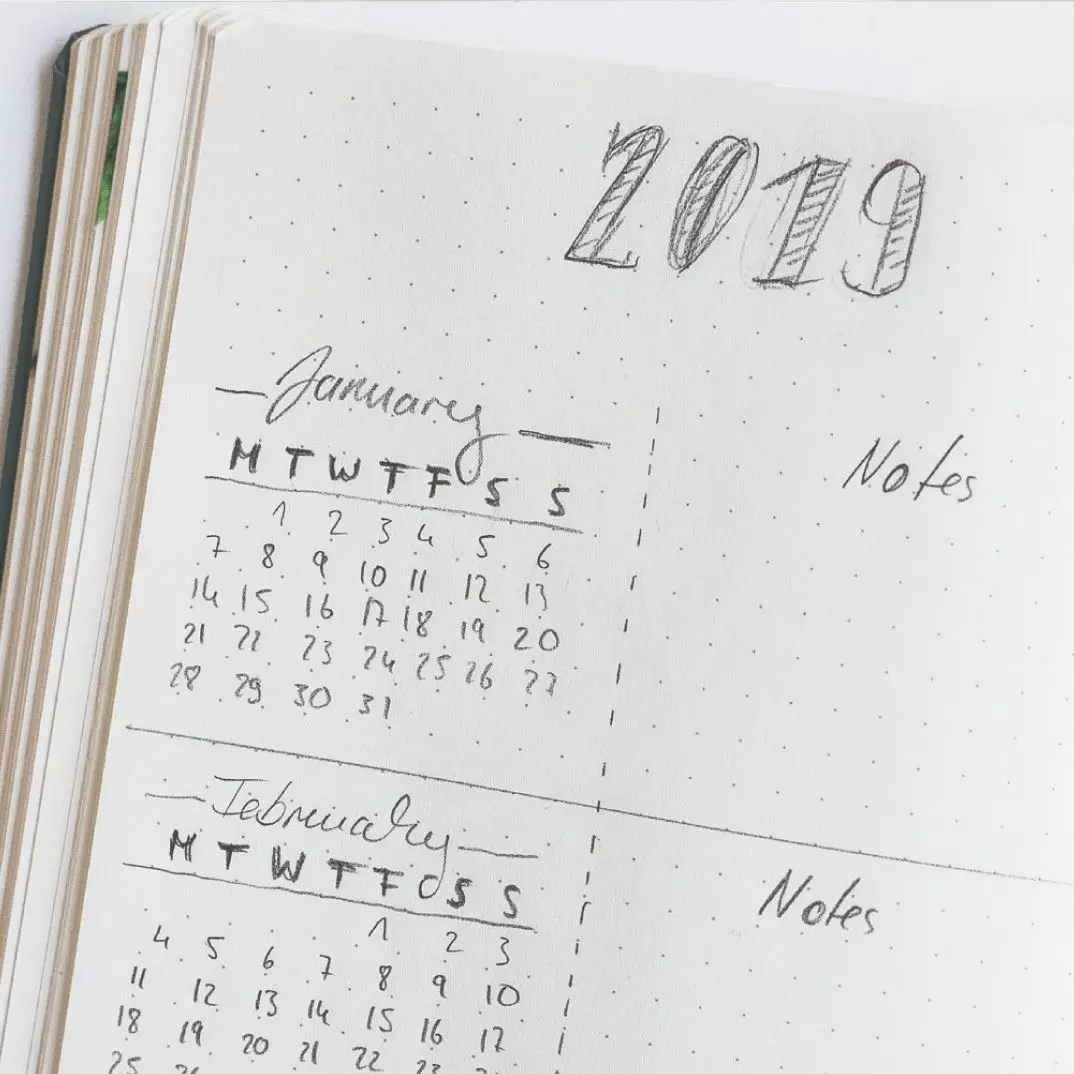 2019
January
M T W T F S S
1 2 3 4 5 6
7 8 9 10 11 12 13
14 15 16 17 18 19 20
21 22 23 24 25 26 27
28 29 30 31
Notes
February
M T W T F S S
1 2 3
4 5 6 7 8 9 10
11 12 13 14 15 16 17
18 19 20 21 22 23
25
Notes